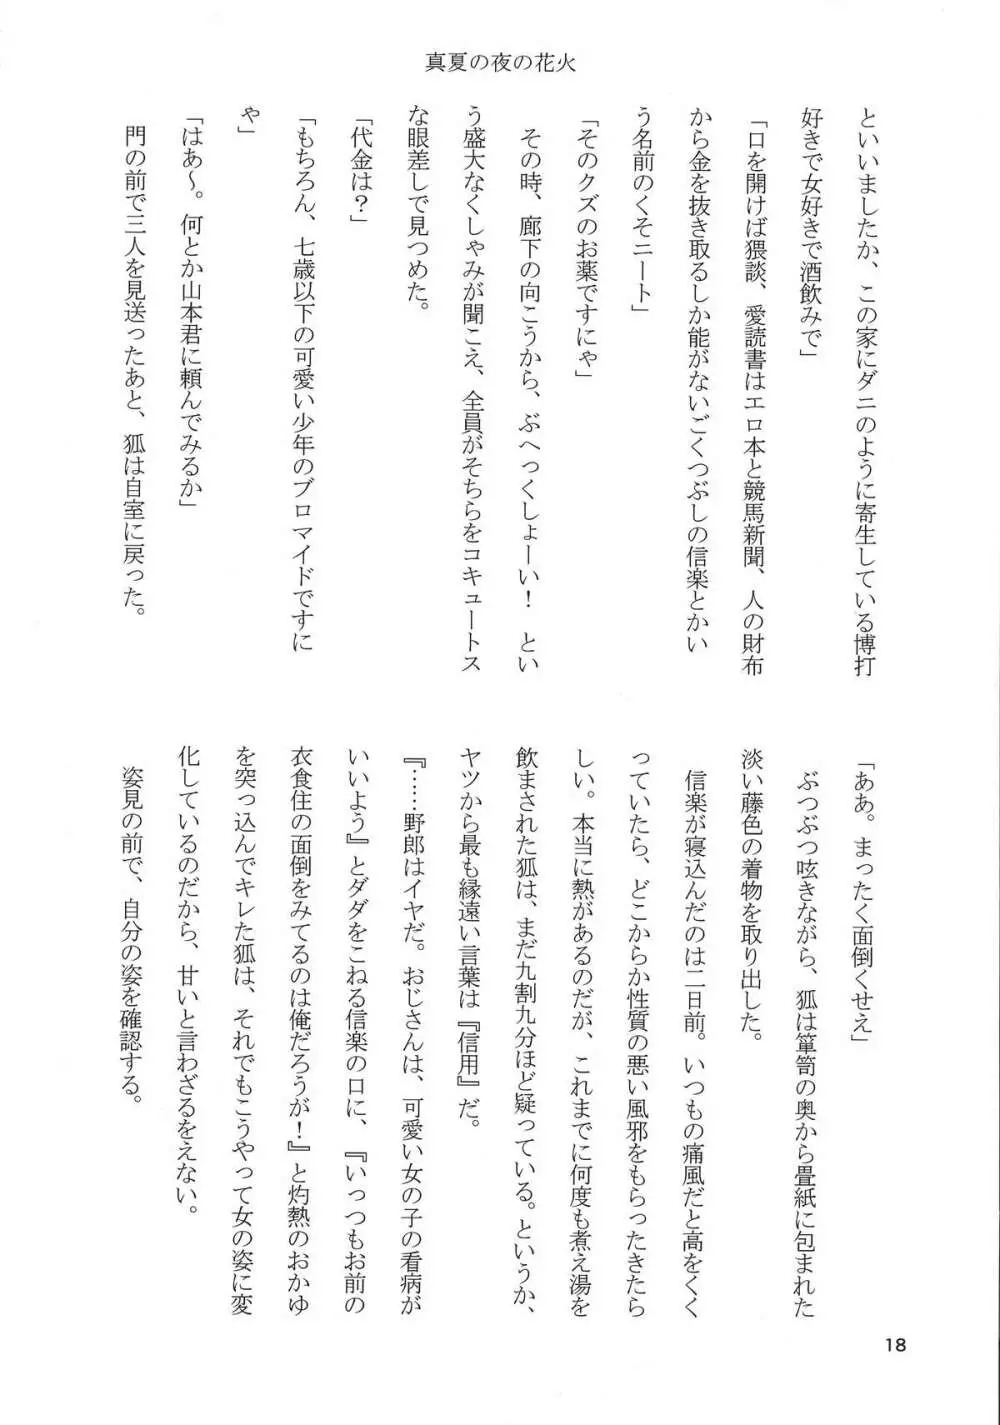 真夏の夜の花火
といいましたか、この家にダニのように寄生している博打
好きで女好きで酒飲みで」
「口を開けば猥談、愛読書はエロ本と競馬新聞、人の財布
から金を抜き取るしか能がないごくつぶしの信楽とかい
う名前のくそニート」
「そのクズのお薬ですにゃ」
その時、廊下の向こうから、ぶへっくしょーい！　とい
う盛大なくしゃみが聞こえ、全員がそちらをコキュートス
な眼差しで見つめた。
「代金は？」
「もちろん、七歳以下の可愛い少年のブロマイドですに
ゃ」
「はあ～。何とか山本君に頼んでみるか」
門の前で三人を見送ったあと、狐は自室に戻った。
「ああ。まったく面倒くせえ」
ぶつぶつ呟きながら、狐は箪笥の奥から畳紙に包まれた
淡い藤色の着物を取り出した。
信楽が寝込んだのは二日前。いつもの痛風だと高をくく
っていたら、どこからか性質の悪い風邪をもらったきたら
しい。本当に熱があるのだが、これまでに何度も煮え湯を
飲まされた狐は、まだ九割九分ほど疑っている。というか、
ヤツから最も縁遠い言葉は『信用』だ。
『……野郎はイヤだ。おじさんは、可愛い女の子の看病が
いいよう』とダダをこねる信楽の口に、『いっつもお前の
衣食住の面倒をみてるのは俺だろうが！』と灼熱のおかゆ
を突っ込んでキレた狐は、それでもこうやって女の姿に変
化しているのだから、甘いと言わざるをえない。
姿見の前で、自分の姿を確認する。
18